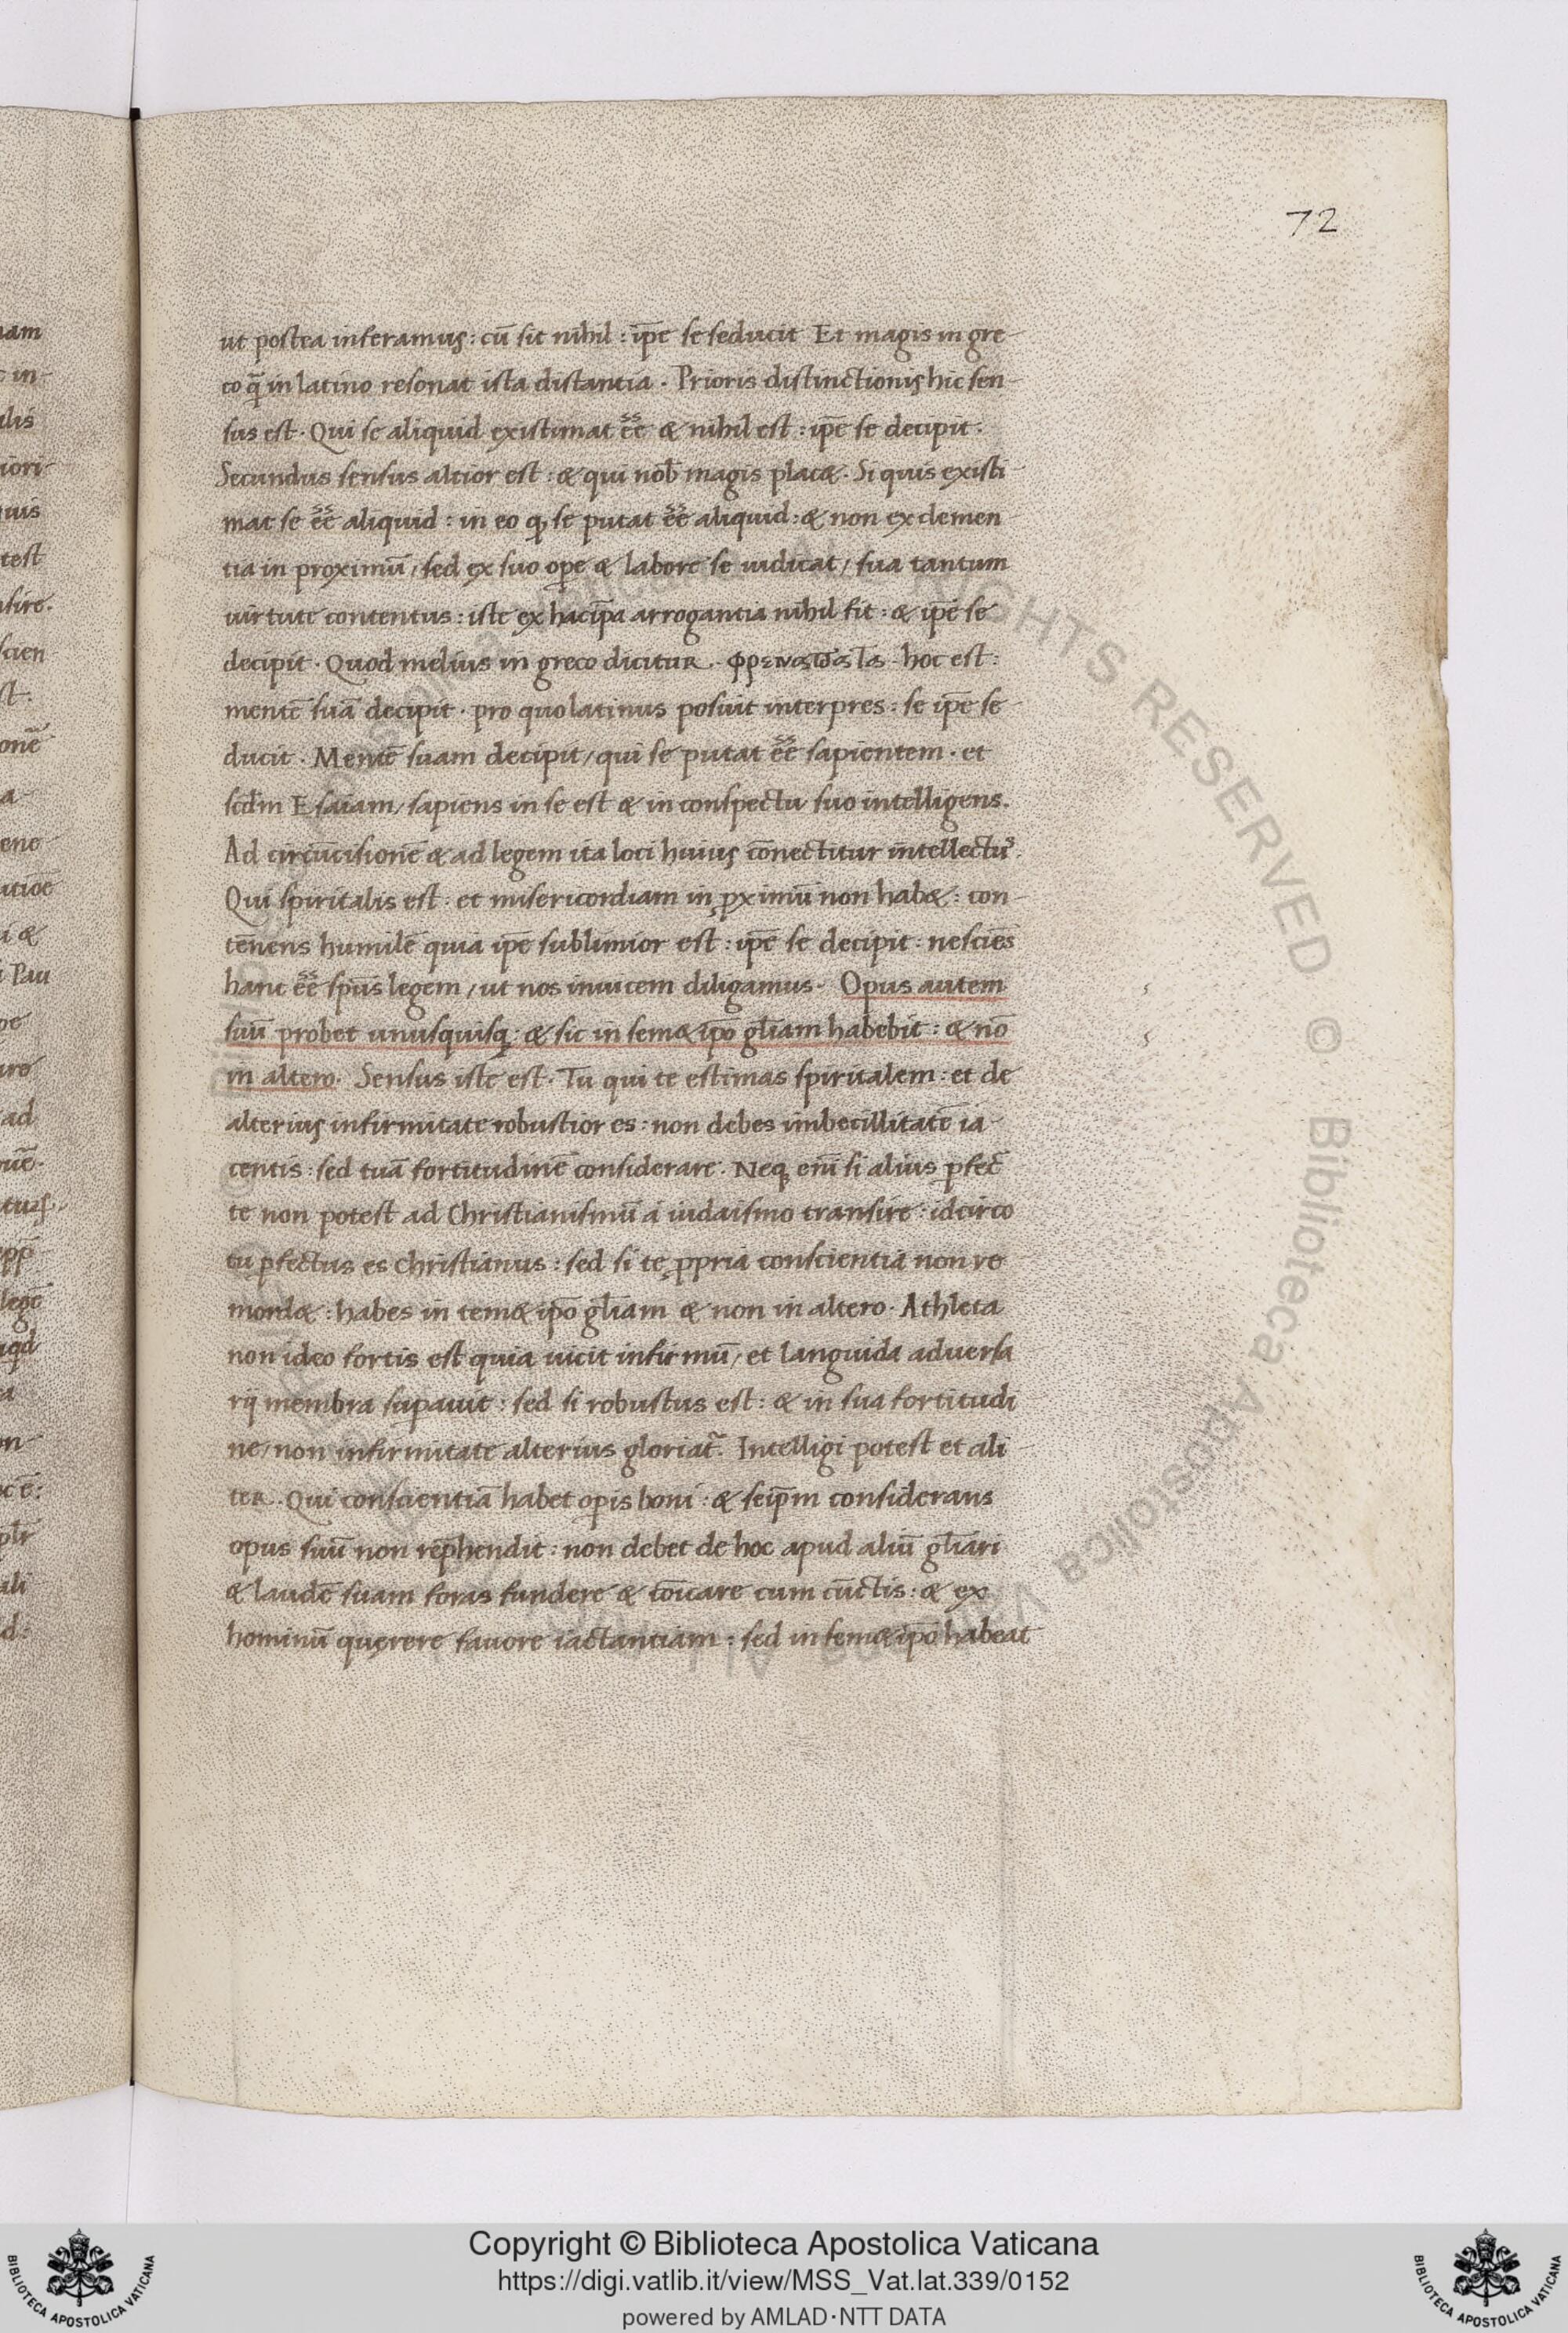 72
ut postea inferamus: cū sit nihil: ip̄e se seducit Et magis in gre-
co q̄ in latino resonat ista distantia. Prioris distinctionis hic sen-
sus est. Qui se aliquid existimat ēē & nihil est: ip̄e se decipit.
Secundus sensus altior est: & qui nob̄ magis placæ. Si quis existi-
mat se ēē aliquid: in eo ꝙ se putat ēē aliquid: & non ex clemen-
tia in proximū, sed ex suo ope & labore se iudicat, sua tantum
uirtute contentus: iste ex hac ip̄a arrogantia nihil fit: & ip̄e se
decipit. Quod melius in greco dicitur. hoc est:
mentē suā decipit. pro quo latinus posuit interpres: se ip̄e se-
ducit. Mentē suam decipit, qui se putat ēē sapientem. et
scd̄m Esaiam, sapiens in se est & in conspectu suo intelligens.
Ad circūcisionē & ad legem ita loci huius cōnectitur intellectꝰ.
Qui spiritalis est: et misericordiam in ꝓximū non habæ: con-
tēnens humilē quia ip̄e sublimior est: ip̄e se decipit: nesciēs
hanc ēē spūs legem, ut nos inuicem diligamus. Opus autem
suū probet unusquisq; & sic in semæ ip̄o gl̄iam habebit: & nō
in altero. Sensus iste est. Tu qui te estimas spiritalem: et de
alterius infirmitate robustior es: non debes imbecillitatē ia-
centis: sed tuā fortitudinē considerare. Neq; eni̅ si alius ꝑfec̄
te non potest ad Christianismū a iudaismo transire: idcirco
tu ꝑfectus es christianus: sed si te ꝓpria conscientia non re-
mordæ: habes in temæ ip̄o gl̄iam & non in altero. Athleta
non ideo fortis est quia uicit infirmū, et languida aduersa
rij membra suꝑauit: sed si robustus est: & in sua fortitudi
ne, non infirmitate alterius gloriat̄. Intelligi potest et ali-
ter. Qui conscientiā habet oꝑis boni: & seip̄m considerans
opus suū non rep̄hendit: non debet de hoc apud aliū gl̄iari
& laudē suam foras fundere & cōicare cum cūctis: & ex
hominū quęrere fauore iactantiam: sed in semæ ip̄o habeat
Copyright © Biblioteca Apostolica Vaticana
https://digi.vatlib.it/view/MSS_Vat.lat.339/0152
powered by AMLAD·NTT DATA